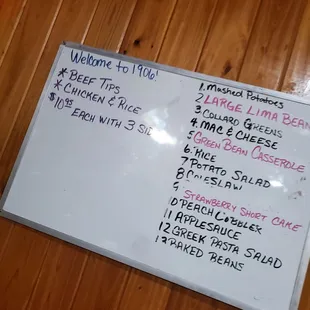 Welcome to 1906!
* BEEF TIPS
* CHICKEN & RICE
$10.95 EACH WITH 3 SID
1. MASHED POTATOES
2 LARGE LIMA BEAN
3 COLLARD GREENS
4. MAC & CHEESE
5 GREEN BEAN CASSEROLE
6. RICE
7 POTATO SALAD
8 COLESLAW
9 STRAWBERRY SHORT CAKE
10 PEACH COBBLER
11 APPLESAUCE
12 GREEK PASTA SALAD
13 BAKED BEANS